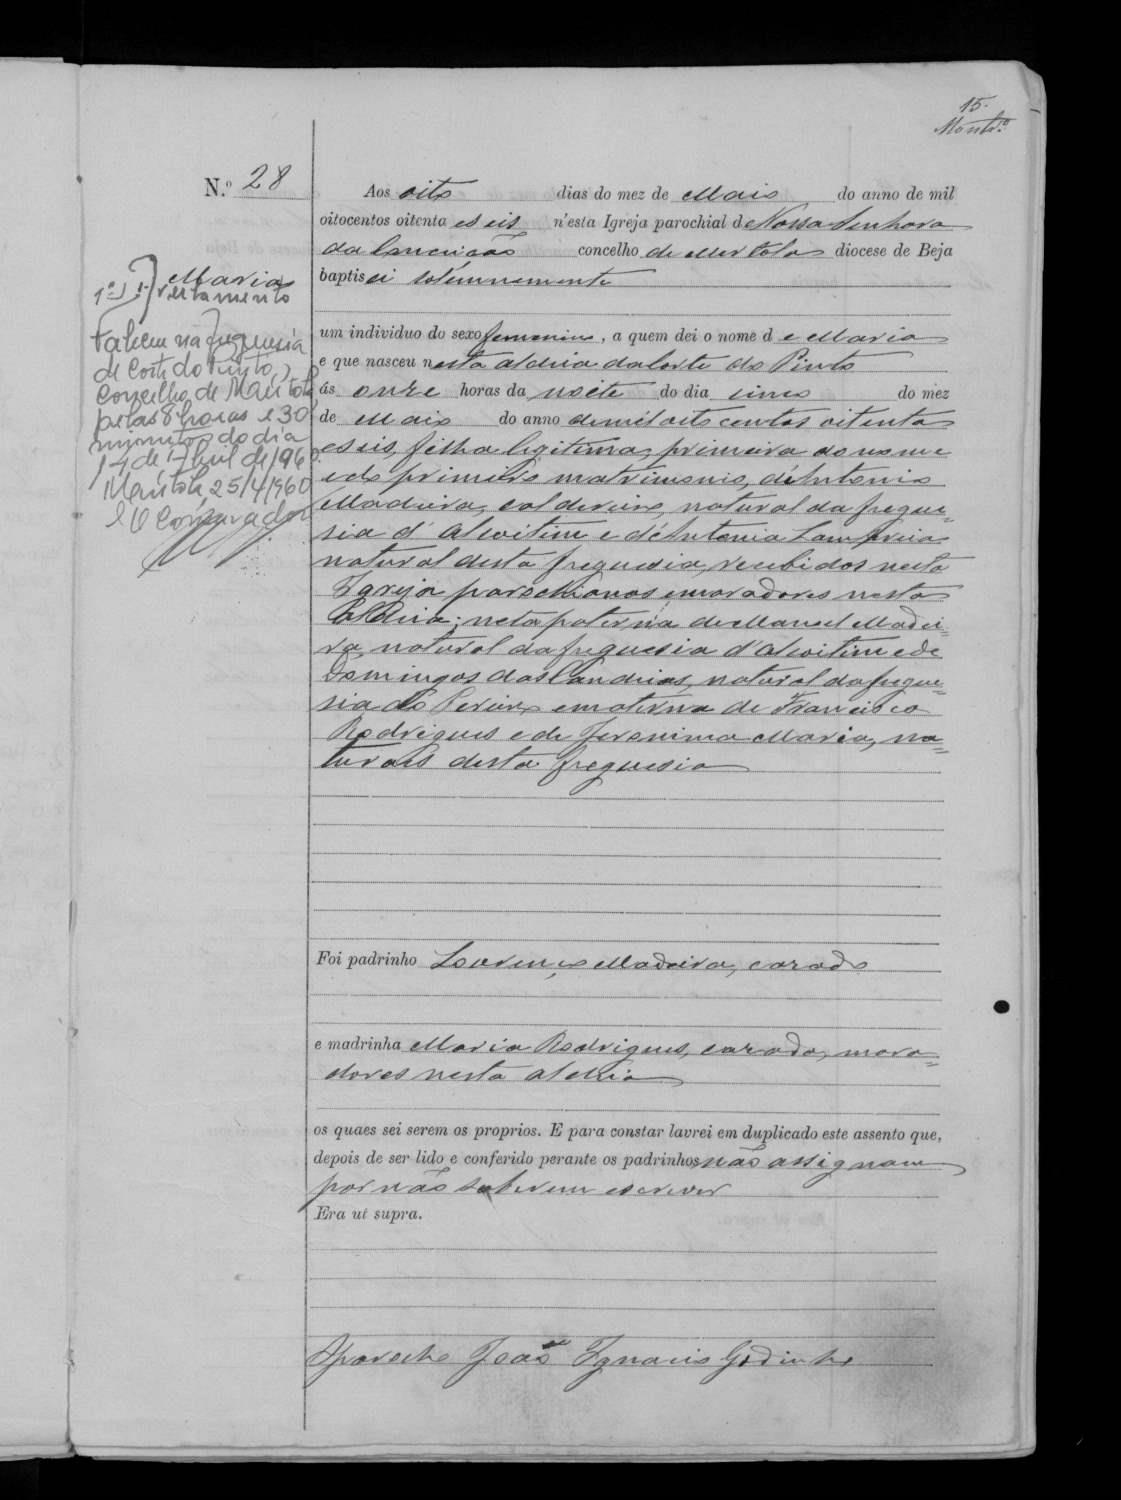 15.
N.º 28
Aos oito dias do mez de Maio do anno de mil
oitocentos oitenta e seis n'esta Igreja parochial de Nossa Senhora
da Conceição concelho de Mertola diocese de Beja
baptisei solemnemente
um individuo do sexo femenino, a quem dei o nome de Maria
e que nasceu nesta aldeia da Corte do Pinto
ás onze horas da noite do dia cinco do mez
de Maio do anno de mil oito centos oitenta
e seis, filha legitima, primeira do nome
e do primeiro matrimonio, d'Antonio
Madeira, caldereiro, natural da fregue=
sia d' Alcoitim e d'Antonia Lampreia
natural desta freguesia, recebidos nesta
Igreja parochianos e moradores nesta
Aldeia; neta paterna de Manoel Madei=
ra, natural da freguesia d'Alcoitim e de
Domingos das Candeias, natural da fregue=
sia do Pereiro e materna de Francisco
Rodrigues e de Jeronima Maria, na=
turais desta freguesia
Foi padrinho Lourenço Madeira, casado
e madrinha Maria Rodrigues, casada, mora=
dores nesta aldeia
os quaes sei serem os proprios. E para constar lavrei em duplicado este assento que,
depois de ser lido e conferido perante os padrinhos não assignam
por não saberem escrever
Era ut supra.
O parocho João Ignacio Godinho
Maria
1º
Faleceu na freguesia
de Corte do Pinto,
Concelho de Mértola
pelas 8 horas e 30
minutos do dia
14 de Abril de 1960.
Mértola, 25/4/1960
O Conservador